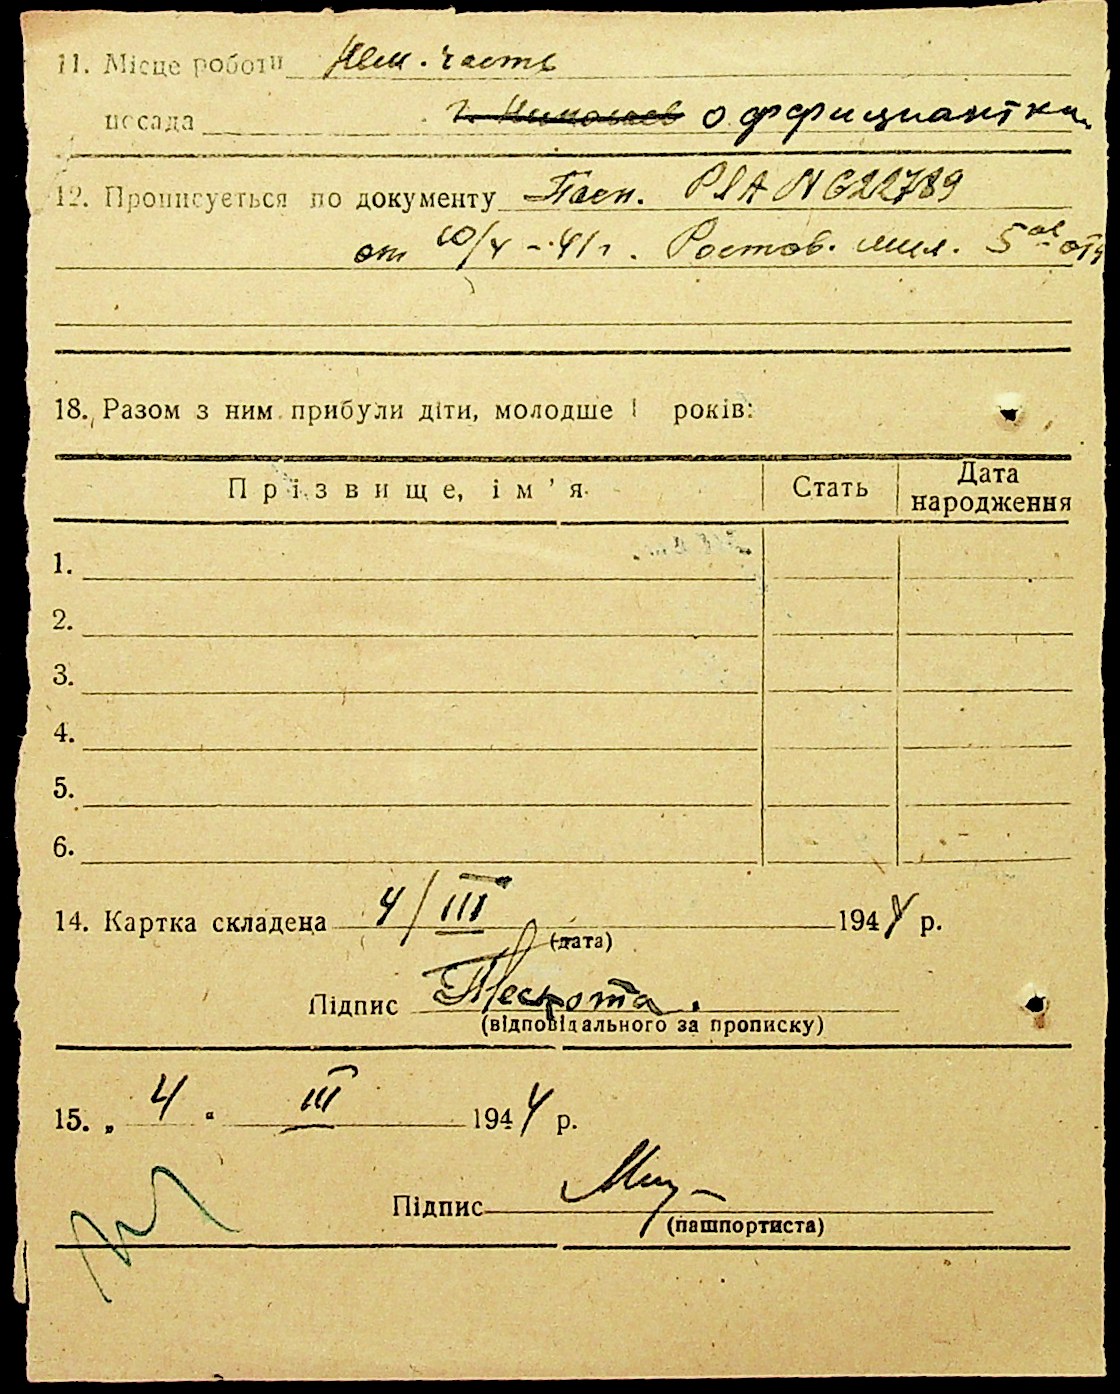 11. Місце роботи Нем. часть
посада г. Николаев оффициантка.
12. Прописується по документу Пасп. РЯА № 622789
от 10/X - 41 г. Ростов. мил. 5ое отд
18. Разом з ним прибули діти, молодше 1 років:
Прізвище, ім’я Стать Дата народження
1.
2.
3.
4.
5.
6.
14. Картка складена 4/III 1944 р.
(дата)
Підпис
(відповідального за прописку)
15. „ 4 " III 1944 р.
Підпис
(пашпортиста)